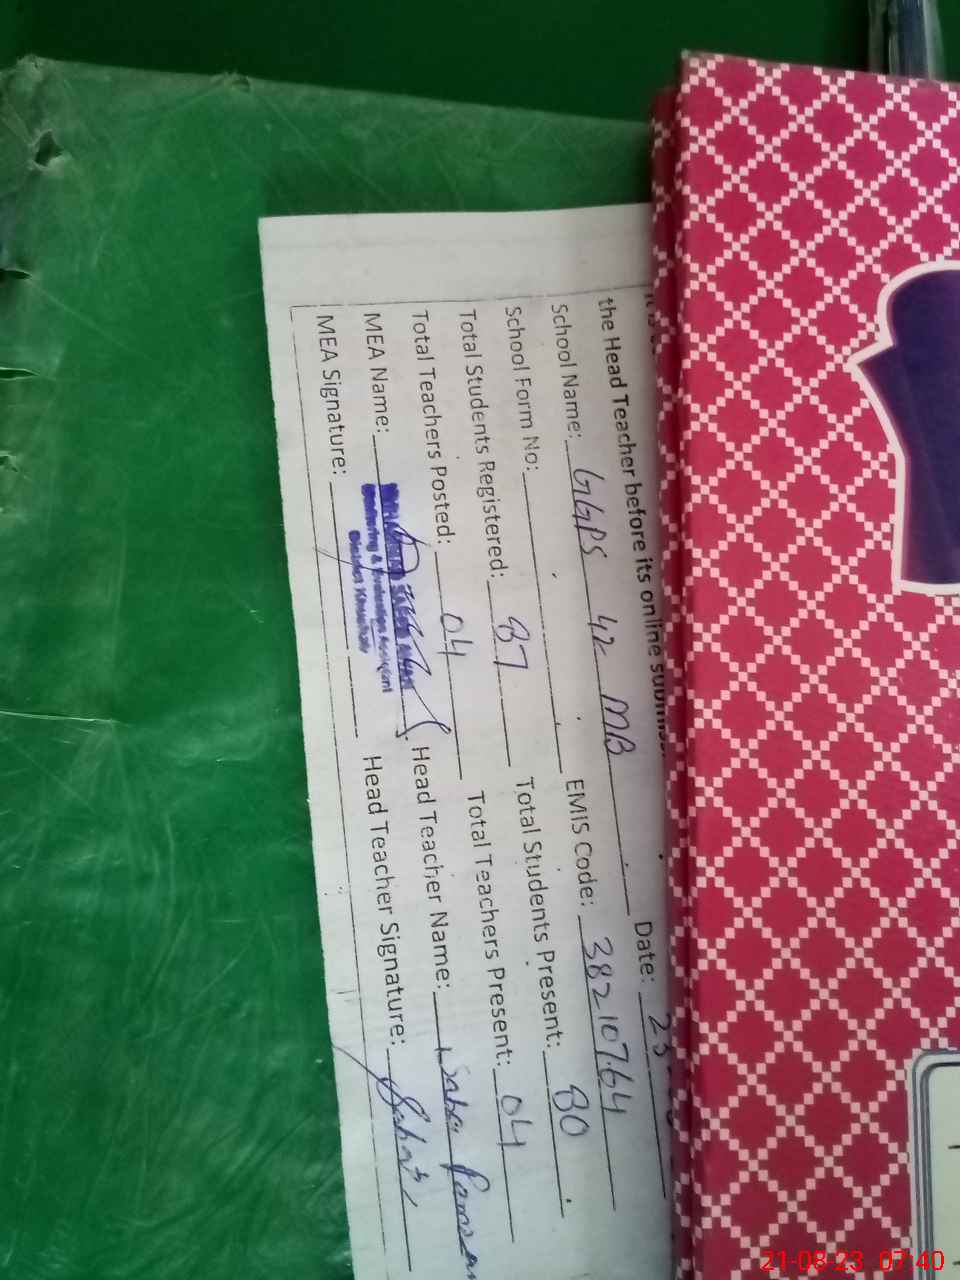 the Head Teacher before its online
School Name: GGPS 42 MB Date: 23
School Form No: EMIS Code: 38210764
Total Students Registered: 87 Total Students Present: 80
Total Teachers Posted: 04 Total Teachers Present: 04
MEA Name: Head Teacher Name:
Monitoring & Evaluation Assistant
District Khushab
MEA Signature: Head Teacher Signature:
21-08-23 07:40